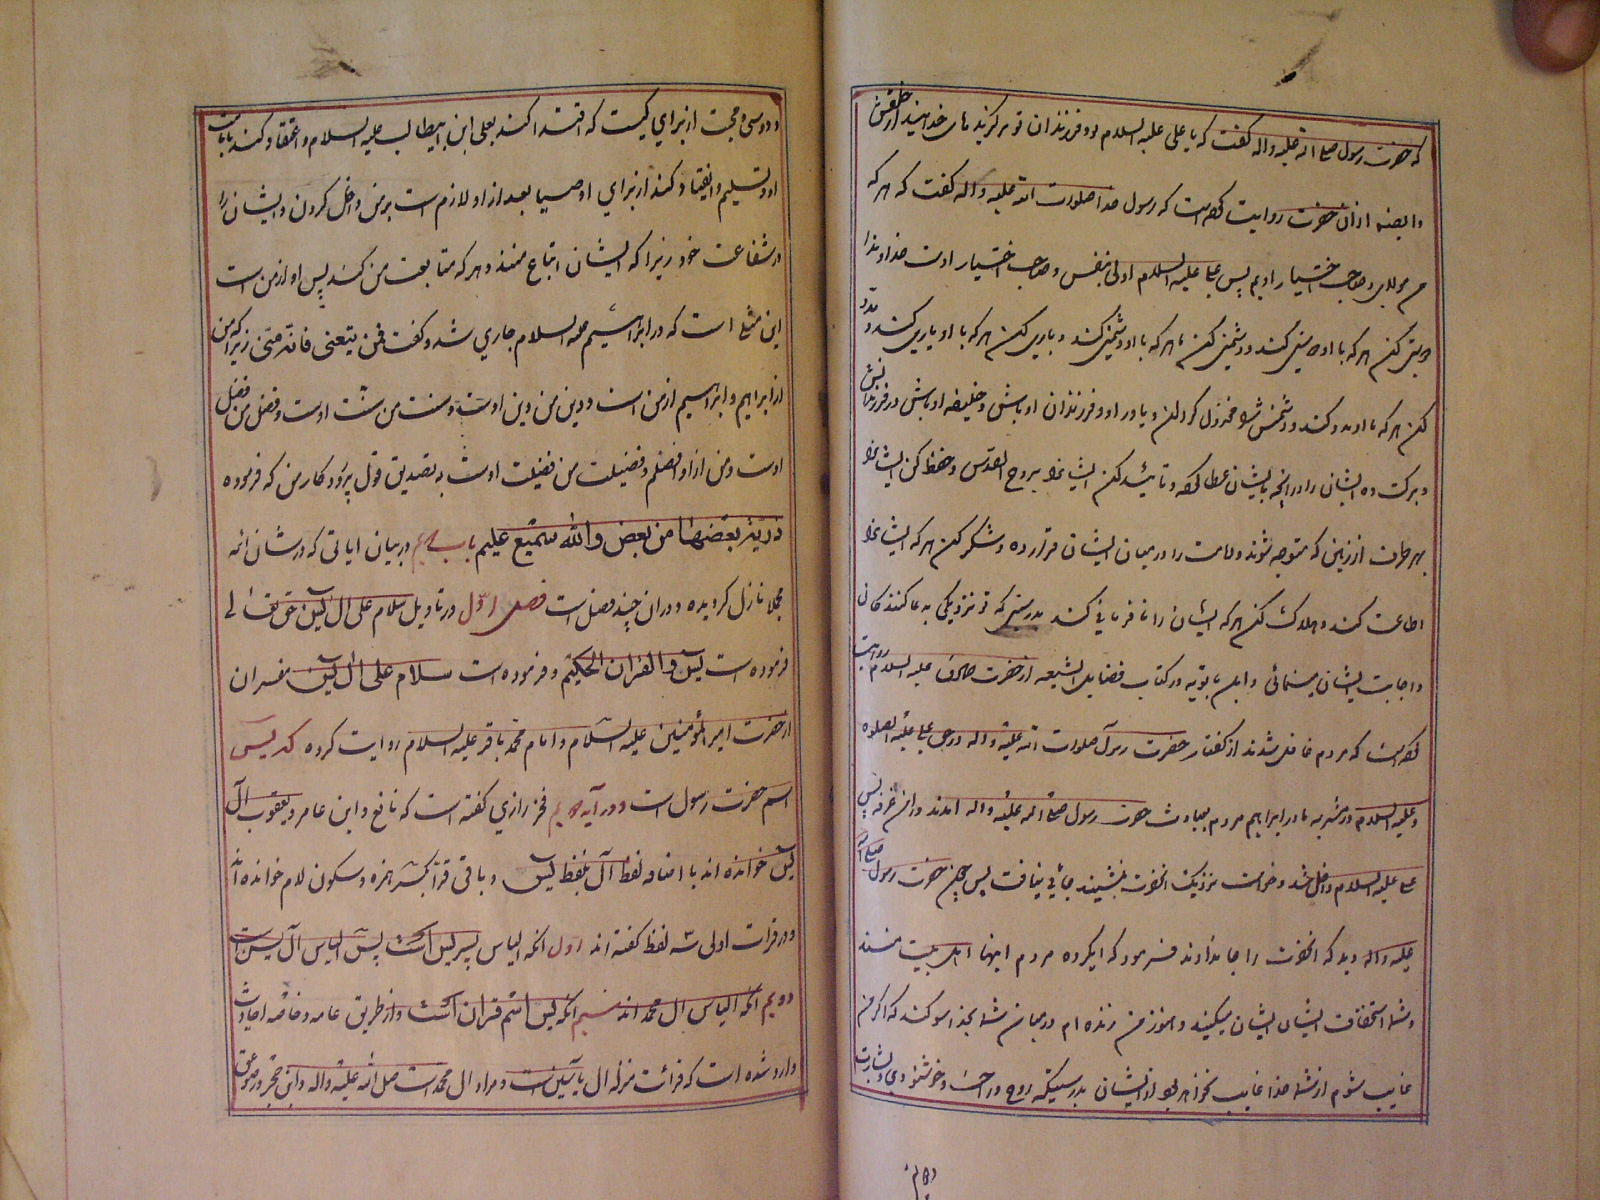 که حضرت رسول صلی الله علیه واله گفت که یا علی علیه السلام
وایضا از ان حضرت روایت کرده است که رسول خدا صلوات الله علیه واله گفت که هر که
من مولای وصاحب اختیار اویم پس علی علیه السلام اولی بنفس وصاحب اختیار اوست خداوندا
دوستی کن هر که با او دوستی کند ودشمنی کن هر که با او دشمنی کند ویاری کن هر که با او یاری کند ومدد
کن هر که با او مدد کند ودشمنش را مخذول کردان ویاور او وفرزندان او باش وخلیفه او باش در فرزندانش
وبرکت ده ایشان را در انچه بایشان عطا کرده وتائید کن ایشانرا بروح القدس وحفظ کن ایشانرا
بهر طرف از زمین که متوجه شوند وامامت را در میان ایشان قرار ده وشکر کن هر که ایشانرا
اطاعت کند وهلاک کن هر که ایشان را نافرمانی کند بدرستی که تو نزدیکی به دعا کنندکان
واجابت ایشان مینمائی وابن بابویه در کتاب فضایل الشیعه از حضرت صادق علیه السلام روایت
کرده است که مردم غافل شدند از گفتار حضرت رسول صلوات الله علیه واله در حق علی علیه الصلوه
وعلیه السلام در مشربه مادر ابراهیم مردم بعیادت حضرت رسول صلی الله علیه واله امدند در ان غرفه پس
علی علیه السلام داخل شد وخواست نزدیک انحضرت بنشیند جائی نیافت پس چون حضرت رسول صلی الله
علیه واله دید که انحضرت را جا ندادند فرمود که ایکروه مردم اینها اهل بیت منند
وشما استخفاف ایشان میکنید وهنوز من زنده ام در میان شما بخدا سوکند که اکر من
غایب شوم از شما خدا غایب نخواهد بود از ایشان بدرستیکه روح وراحت وخوشنودی وبشارت
ودوستی ومحبت از برای کیست که اقتدا کند بعلی ابن ابیطالب علیه السلام واعتقاد کند بامامت
او وتسلیم وانقیاد کند از برای اوصیا بعد از او لازم است بر من داخل کردن ایشان را
در شفاعت خود زیرا که ایشان اتباع منند وهر که متابعت من کند پس او از من است
این مثلی است که در ابراهیم علیه السلام جاری شد وگفت فمن تبعنی فانه منی زیرا که من
از ابراهیم وابراهیم از من است ودین من دین اوست وسنت من سنت اوست وفضل من فضل
اوست ومن از او افضلم وفضیلت من فضیلت اوست به تصدیق قول پروردکار من که فرموده
ذریة بعضها من بعض والله سمیع علیم باب در بیان ایاتی که در شان ائمه
مجملا نازل کردیده ودران چند فصل است فصل اول در تاویل سلام علی ال یس حق تعالی
فرموده است یس والقران الحکیم وفرموده است سلام علی ال یس مفسران
از حضرت امیر المؤمنین علیه السلام وامام محمد باقر علیه السلام روایت کرده که یس
اسم حضرت رسول است ودر آیه فخر رازی گفته است که نافع وابن عامر ویعقوب ال
یس خوانده اند با اضافه لفظ آل بلفظ یس وباقی قرا بکسر همزه وسکون لام خوانده اند
ودر قرات اولی سه لفظ گفته اند اول انکه الیاس پسر یس است پس الیاس آل یس است
دویم انکه الیاس ال محمد اند سیم انکه یس اسم قران است واز طریق عامه وخاصه احادیث
وارد شده است که قرائت منزله ال یاسین است ومراد ال محمد است صلی الله علیه واله وابن حجر در صواعق